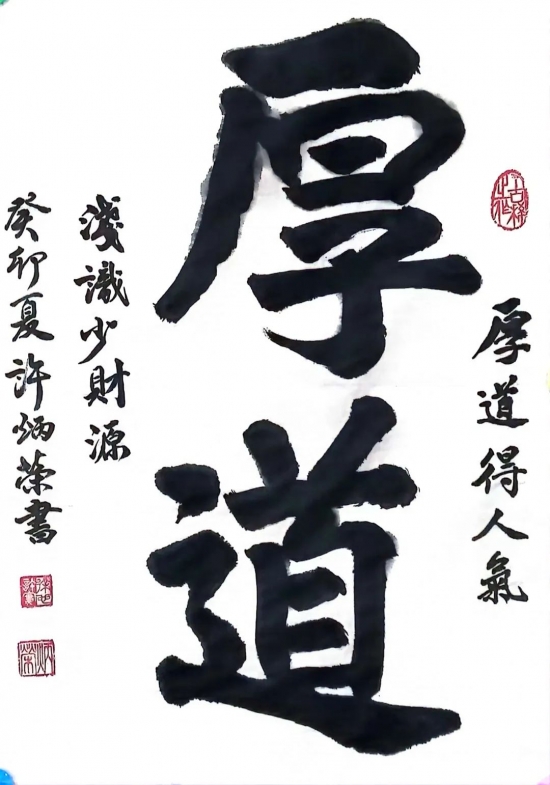 厚道
厚道得人氣
淺識少財源
癸卯夏許炳榮書